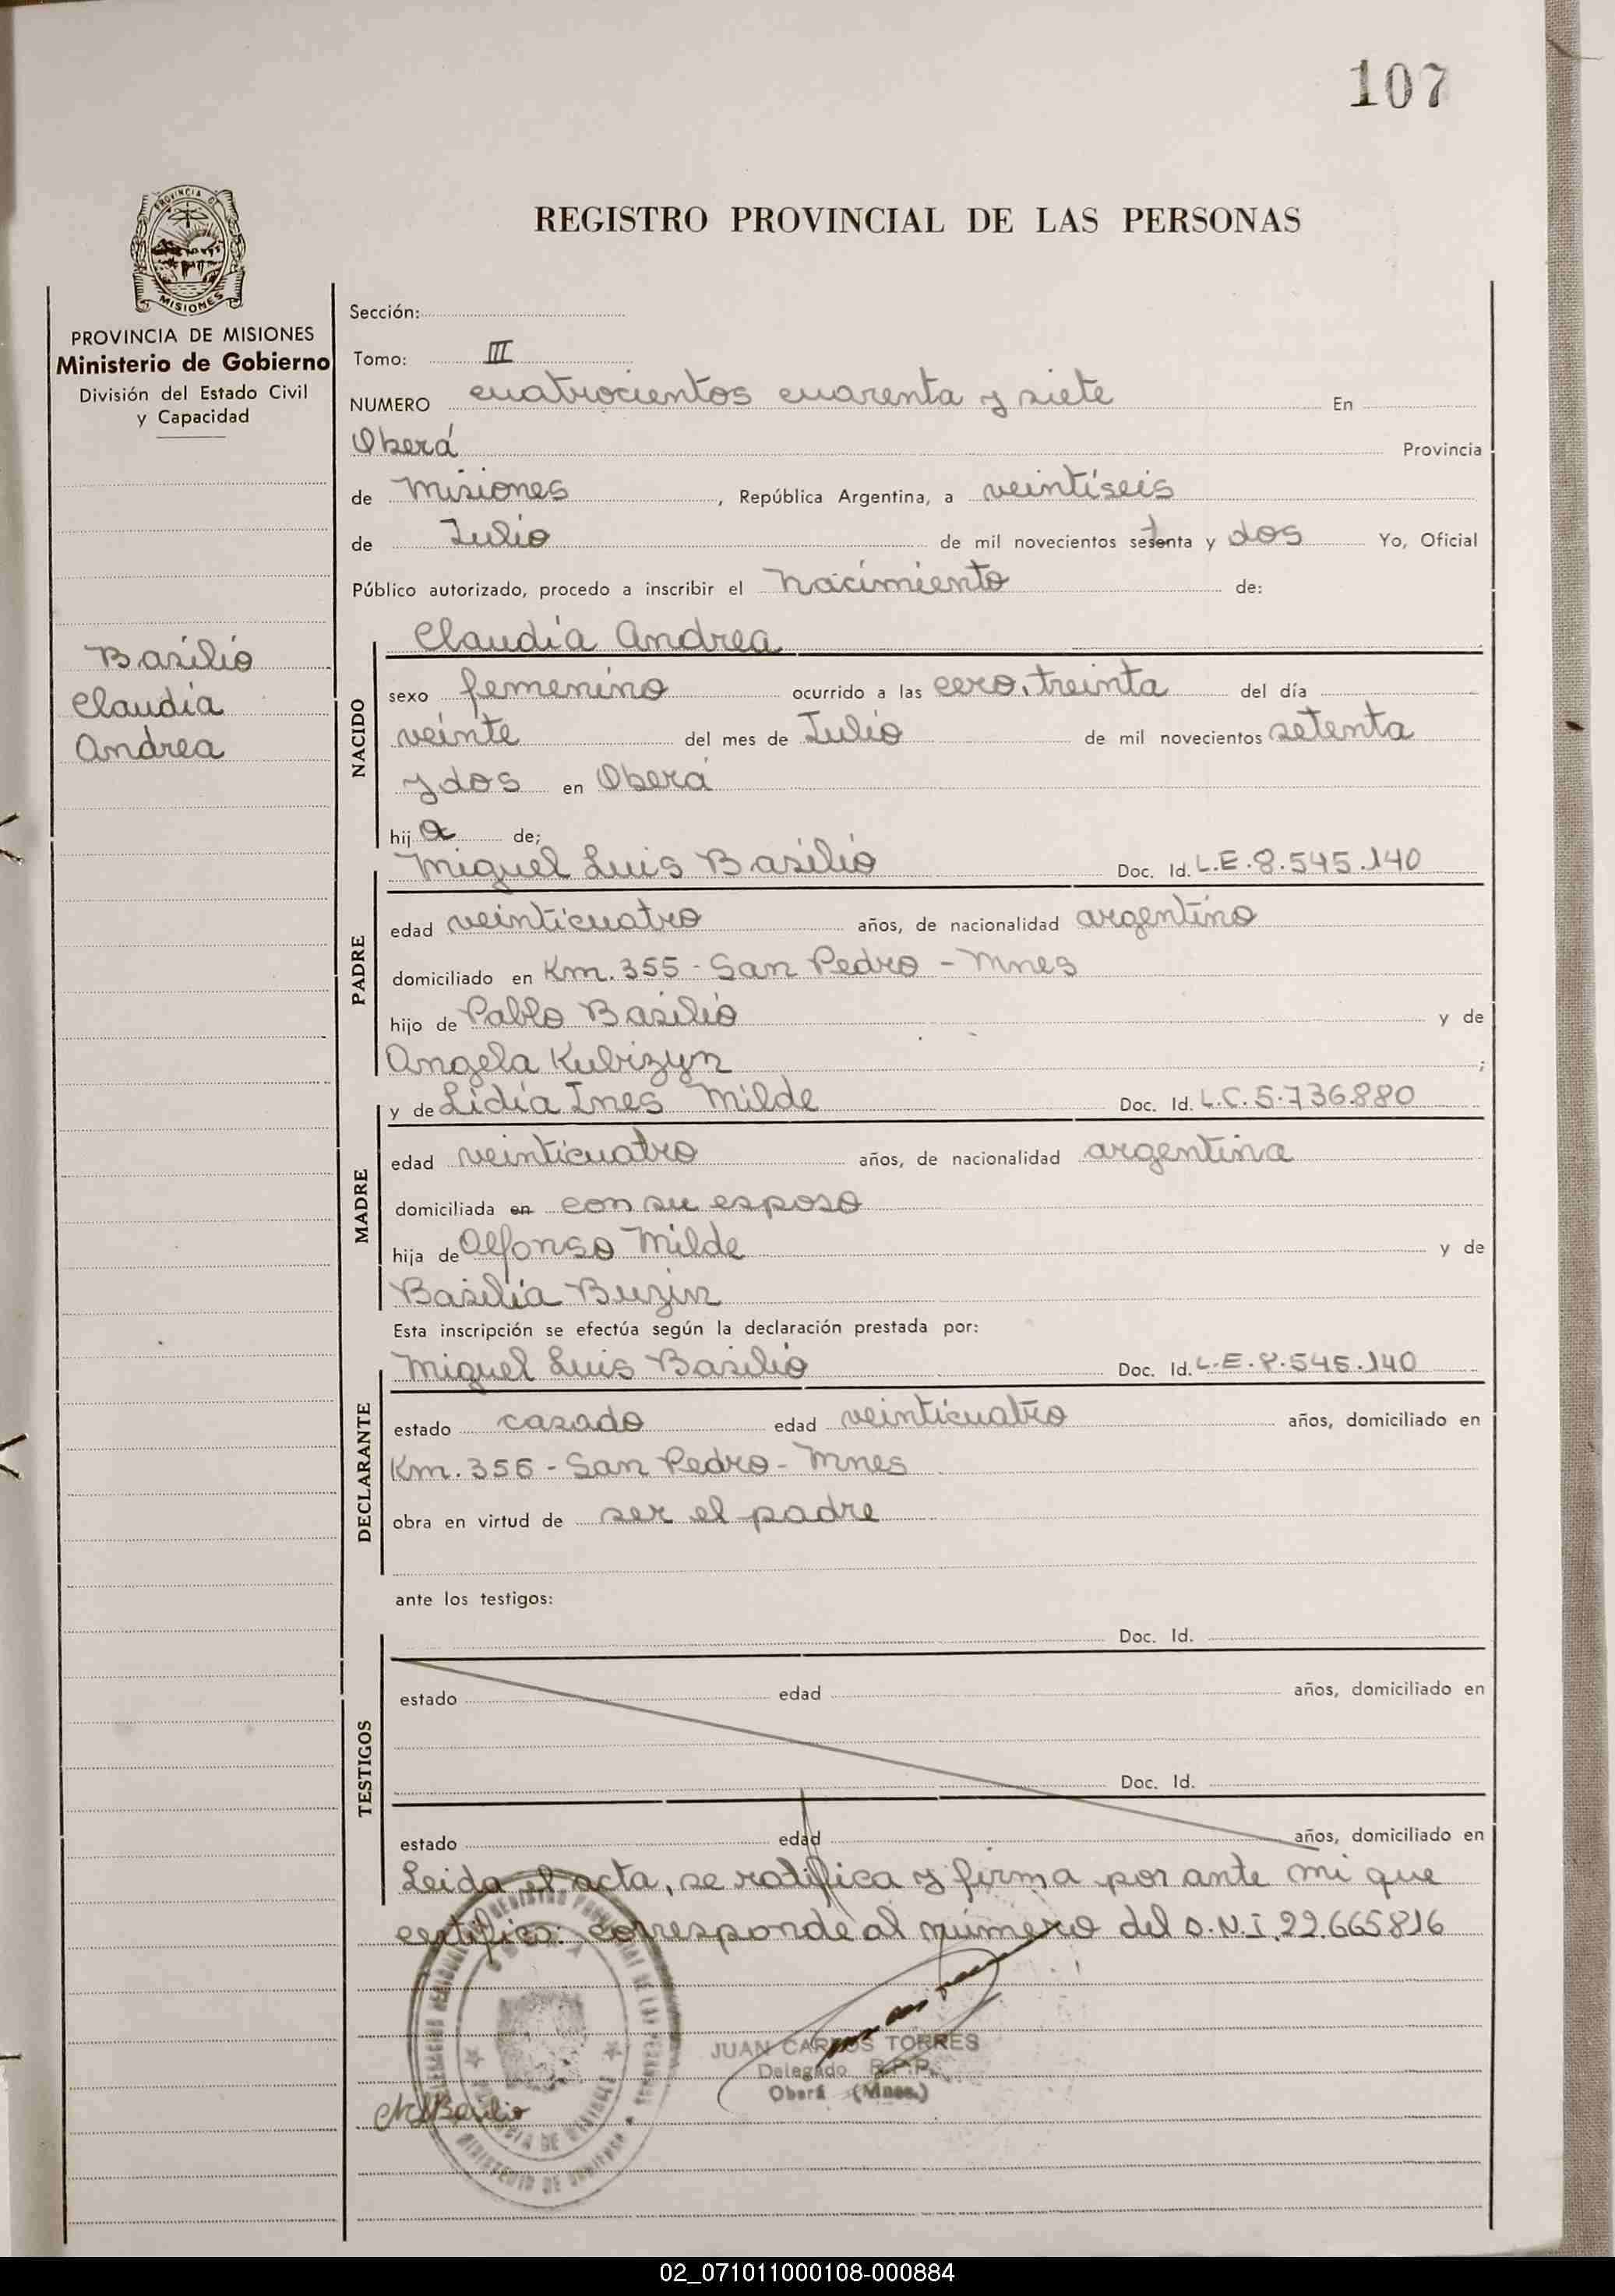 107
REGISTRO PROVINCIAL DE LAS PERSONAS
PROVINCIA DE MISIONES
Ministerio de Gobierno
División del Estado Civil
y Capacidad
Basilio
Claudia
Andrea
Sección:
Tomo: III
NUMERO cuatrocientos cuarenta y siete En
Oberá Provincia
de Misiones, República Argentina, a veintiseis
de Julio de mil novecientos setenta y dos Yo, Oficial
Público autorizado, procedo a inscribir el Nacimiento de:
NACIDO
Claudia Andrea
sexo femenino ocurrido a las cero, treinta del día
veinte del mes de Julio de mil novecientos setenta
y dos en Oberá
hija de;
PADRE
Miguel Luis Basilio Doc. Id. L.E.8.545.140
edad veinticuatro años, de nacionalidad argentino
domiciliado en Km. 355 - San Pedro - Mnes
hijo de Pablo Basilio y de
Angela Kubizyn ;
MADRE
y de Lidia Ines Milde Doc. Id. L.C.5.736.880
edad veinticuatro años, de nacionalidad argentina
domiciliada en con su esposo
hija de Alfonso Milde y de
Basilia Buzin
Esta inscripción se efectúa según la declaración prestada por:
DECLARANTE
Miguel Luis Basilio Doc. Id. L.E.8.545.140
estado casado edad veinticuatro años, domiciliado en
Km. 355 - San Pedro - Mnes
obra en virtud de ser el padre
ante los testigos:
TESTIGOS
Doc. Id.
estado edad años, domiciliado en
Doc. Id.
estado edad años, domiciliado en
Leida el acta, se ratifica y firma por ante mi que
certifico: corresponde al número del D.N.I. 22.665816
JUAN CARLOS TORRES
Delegado R.P.P.
Oberá (Mnes.)
Basilio
02_071011000108-000884